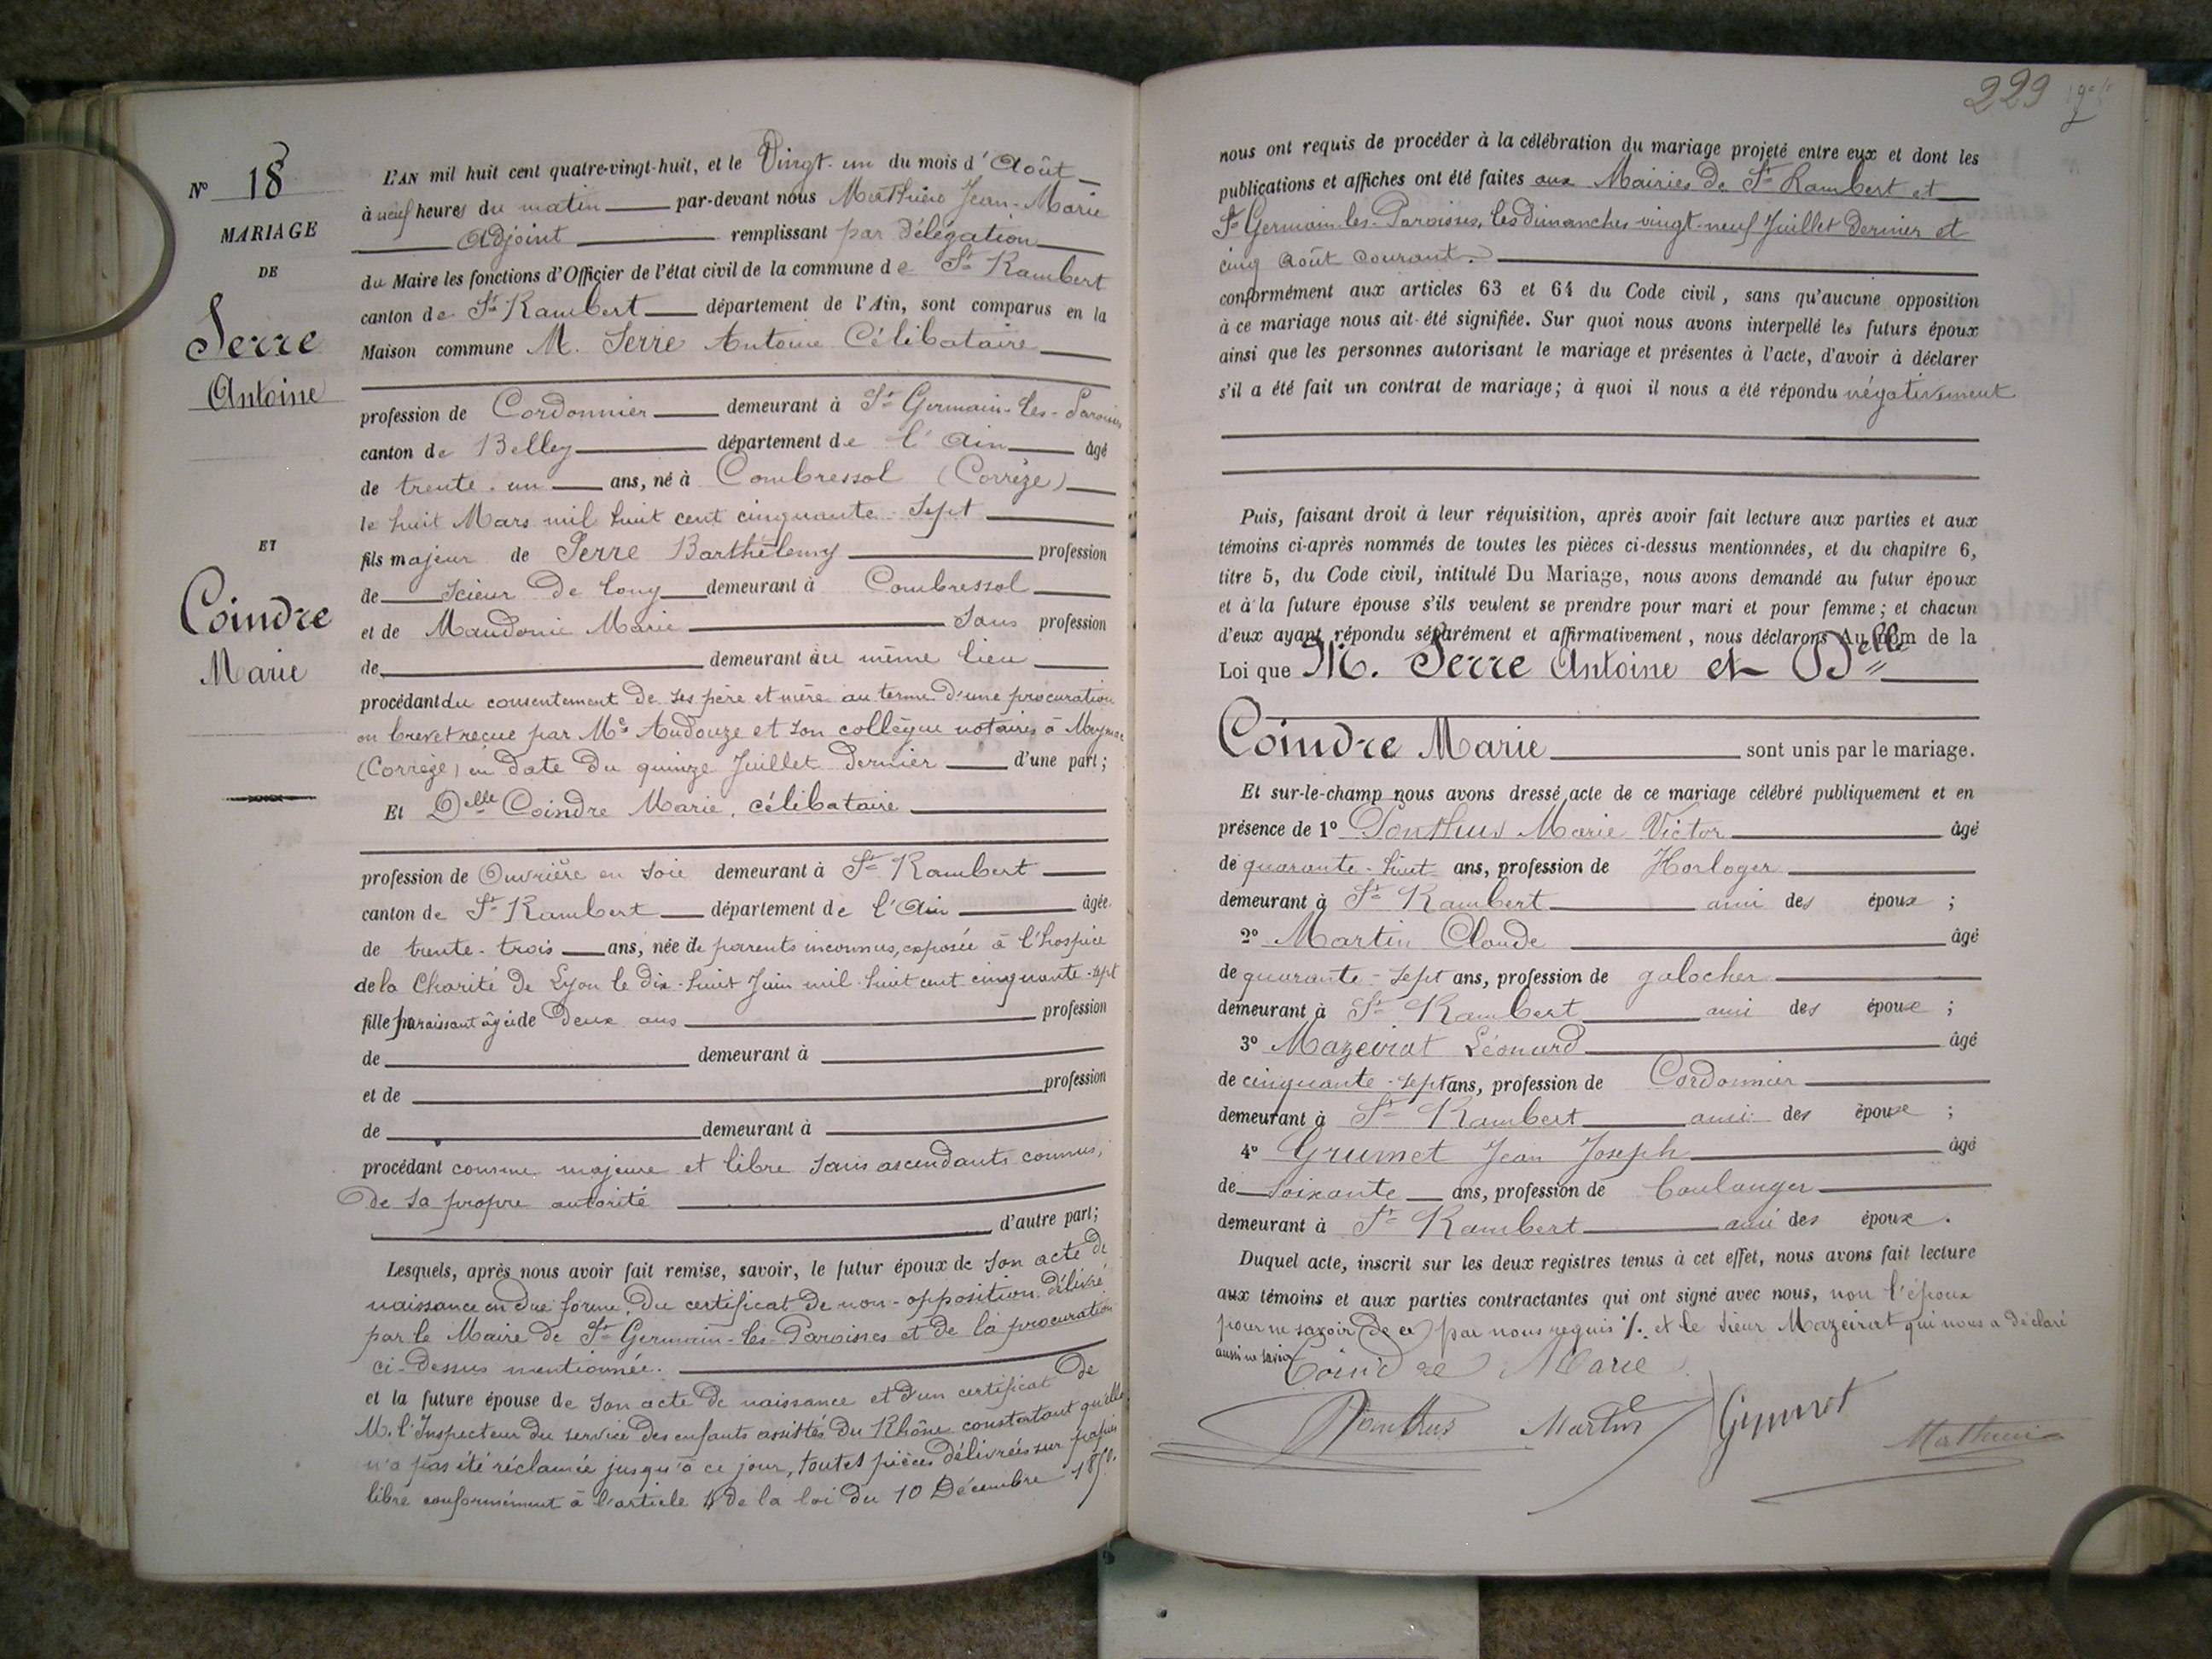 N° 18
MARIAGE
DE
Serre
Antoine
ET
Coindre
Marie
L'AN mil huit cent quatre-vingt-huit, et le Vingt-un du mois d'Août
à neuf heures du matin par-devant nous Mathieu Jean-Marie
Adjoint remplissant par délégation
du Maire les fonctions d'Officier de l'état civil de la commune de St Rambert
canton de St Rambert département de l'Ain, sont comparus en la
Maison commune M. Serre Antoine Célibataire
profession de Cordonnier demeurant à St Germain-les-Paroisses
canton de Belley département de l'Ain âgé
de trente-un ans, né à Combressol (Corrèze)
le huit Mars mil huit cent cinquante-sept
fils majeur de Serre Barthélemy profession
de scieur de long demeurant à Combressol
et de Maudonie Marie Sans profession
de demeurant au même lieu
procédant du consentement de ses père et mère au terme d'une procuration
en brevet reçue par Me Audouze et son collègue notaires à
(Corrèze) en date du quinze Juillet dernier d'une part;
Et Delle Coindre Marie, célibataire
profession de Ouvrière en soie demeurant à St Rambert
canton de St Rambert département de l'Ain âgée
de trente-trois ans, née de parents inconnus, exposée à l'hospice
de la Charité de Lyon le dix-huit Juin mil-huit cent cinquante-sept
fille paraissant âgée de deux ans profession
de demeurant à
et de profession
de demeurant à
procédant comme majeure et libre sans ascendants connus,
de sa propre autorité
d'autre part;
Lesquels, après nous avoir fait remise, savoir, le futur époux de son acte de
naissance en due forme, du certificat de non-opposition délivré
par le Maire de St Germain-les-Paroisses et de la procuration
ci-dessus mentionnée.
et la future épouse de son acte de naissance et d'un certificat de
M. l'Inspecteur du service des enfants assistés du Rhône constatant qu'elle
n'a pas été réclamée jusqu'à ce jour, toutes pièces délivrées sur papier
libre conformément à l'article 4 de la loi du 10 Décembre 1850.
229
nous ont requis de procéder à la célébration du mariage projeté entre eux et dont les
publications et affiches ont été faites aux Mairies de St Rambert et
St Germain-les-Paroisses, les dimanches vingt-neuf Juillet dernier et
cinq Août courant.
conformément aux articles 63 et 64 du Code civil, sans qu'aucune opposition
à ce mariage nous ait été signifiée. Sur quoi nous avons interpellé les futurs époux
ainsi que les personnes autorisant le mariage et présentes à l'acte, d'avoir à déclarer
s'il a été fait un contrat de mariage; à quoi il nous a été répondu négativement
Puis, faisant droit à leur réquisition, après avoir fait lecture aux parties et aux
témoins ci-après nommés de toutes les pièces ci-dessus mentionnées, et du chapitre 6,
titre 5, du Code civil, intitulé Du Mariage, nous avons demandé au futur époux
et à la future épouse s'ils veulent se prendre pour mari et pour femme; et chacun
d'eux ayant répondu séparément et affirmativement, nous déclarons Au nom de la
Loi que M. Serre Antoine et Delle
Coindre Marie sont unis par le mariage.
Et sur-le-champ nous avons dressé acte de ce mariage célébré publiquement et en
présence de 1° Ponthus Marie Victor âgé
de quarante-huit ans, profession de Horloger
demeurant à St Rambert ami des époux ;
2° Martin Claude âgé
de quarante-sept ans, profession de galocher
demeurant à St Rambert ami des époux ;
3° Mazeirat Léonard âgé
de cinquante-sept ans, profession de Cordonnier
demeurant à St Rambert ami des époux ;
4° Grumet Jean Joseph âgé
de soixante ans, profession de boulanger
demeurant à St Rambert ami des époux .
Duquel acte, inscrit sur les deux registres tenus à cet effet, nous avons fait lecture
aux témoins et aux parties contractantes qui ont signé avec nous, non l'époux
pour ne savoir de ce par nous requis ./. et le sieur Mazeirat qui nous a déclaré
aussi ne savoir
Coindre Marie
Ponthus Martin Grumet Mathieu